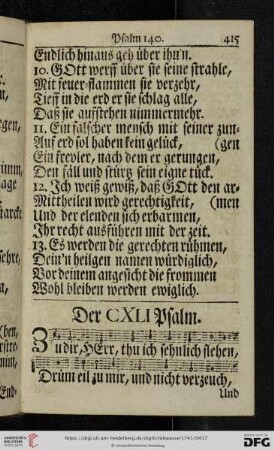 Psalm 140. 415
Endlich hinaus geh über ihn'n.
10. GOtt werff über sie seine strahle,
Mit feuer-flammen sie verzehr,
Tieff in die erd er sie schlag alle,
Daß sie aufstehen nimmermehr.
11. Ein falscher mensch mit seiner zun-
Auf erd sol haben kein gelück, (gen
Ein frevler, nach dem er gerungen,
Den fäll und stürtz sein eigne tück.
12. Ich weiß gewiß, daß GOtt den ar-
Mittheilen wird gerechtigkeit, (men
Und der elenden sich erbarmen,
Ihr recht ausführen mit der zeit.
13. Es werden die gerechten rühmen,
Dein'n heilgen namen würdiglich,
Vor deinem angesicht die frommen
Wohl bleiben werden ewiglich.
Der CXLI Psalm.
Zu dir, HErr, thu ich sehnlich flehen,
Drüm eil zu mir, und nicht verzeuch,
Und
http://digi.ub.uni-heidelberg.de/diglit/lobwasser1741/0417
© Universitätsbibliothek Heidelberg
gefördert durch die
DFG